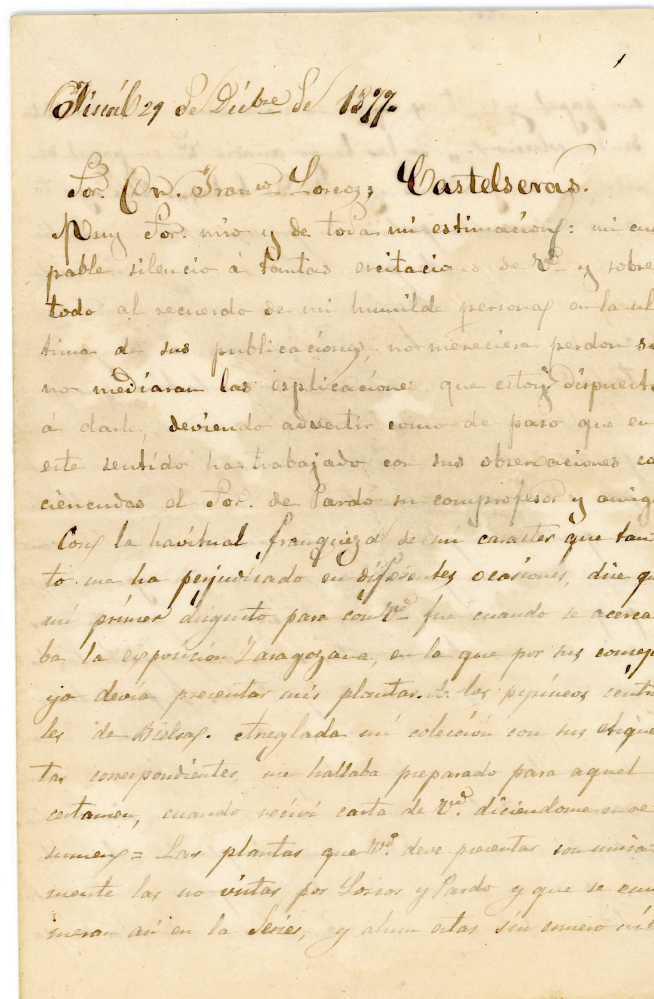 Fiscál 29 de Dicbre de 1877.
Sor. Dn. Franco Loscos; Castelseras.
Muy Sor. mio y de toda mi estimacion: mi cul
pable silencio á tantas escitaciones de Vd y sobre
todo al recuerdo de mi humilde persona en la ul
tima de sus publicaciones, no mereciera perdon si
no mediaran las esplicaciones que estoy dispuesto
á darle, deviendo advertir como de paso que en
este sentido ha trabajado con sus observaciones co
ncienudas el Sor. de Pardo su comprofesor y amigo
Con la havitual franqueza de mi caracter que tan
to me ha perjudicado en diferentes ocasiones, dire que
mi primer disgusto para con Vd fue cuando se acerca
ba la exposicion Zaragozana, en la que por sus consejos
yo devia precentar mis plantas de los pyrineos centra
les de Bielsa. Arreglada mi colección con sus etique
tas correspondientes me hallaba preparado para aquel
certamen, cuando recivi carta de Vd. diciéndome en re
sumen = Las plantas que Vd. deve precentar son unica
mente las no vistas por Loscos y Pardo y que se enu
meran asi en la Series, y ahun estas sin numero